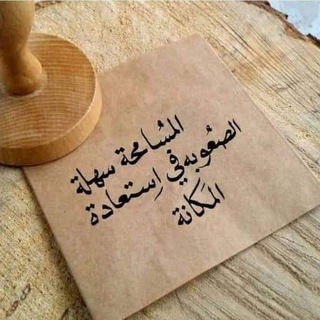 المُسامحة سهلة
الصعُوبه في اِستعادة
المَكانة